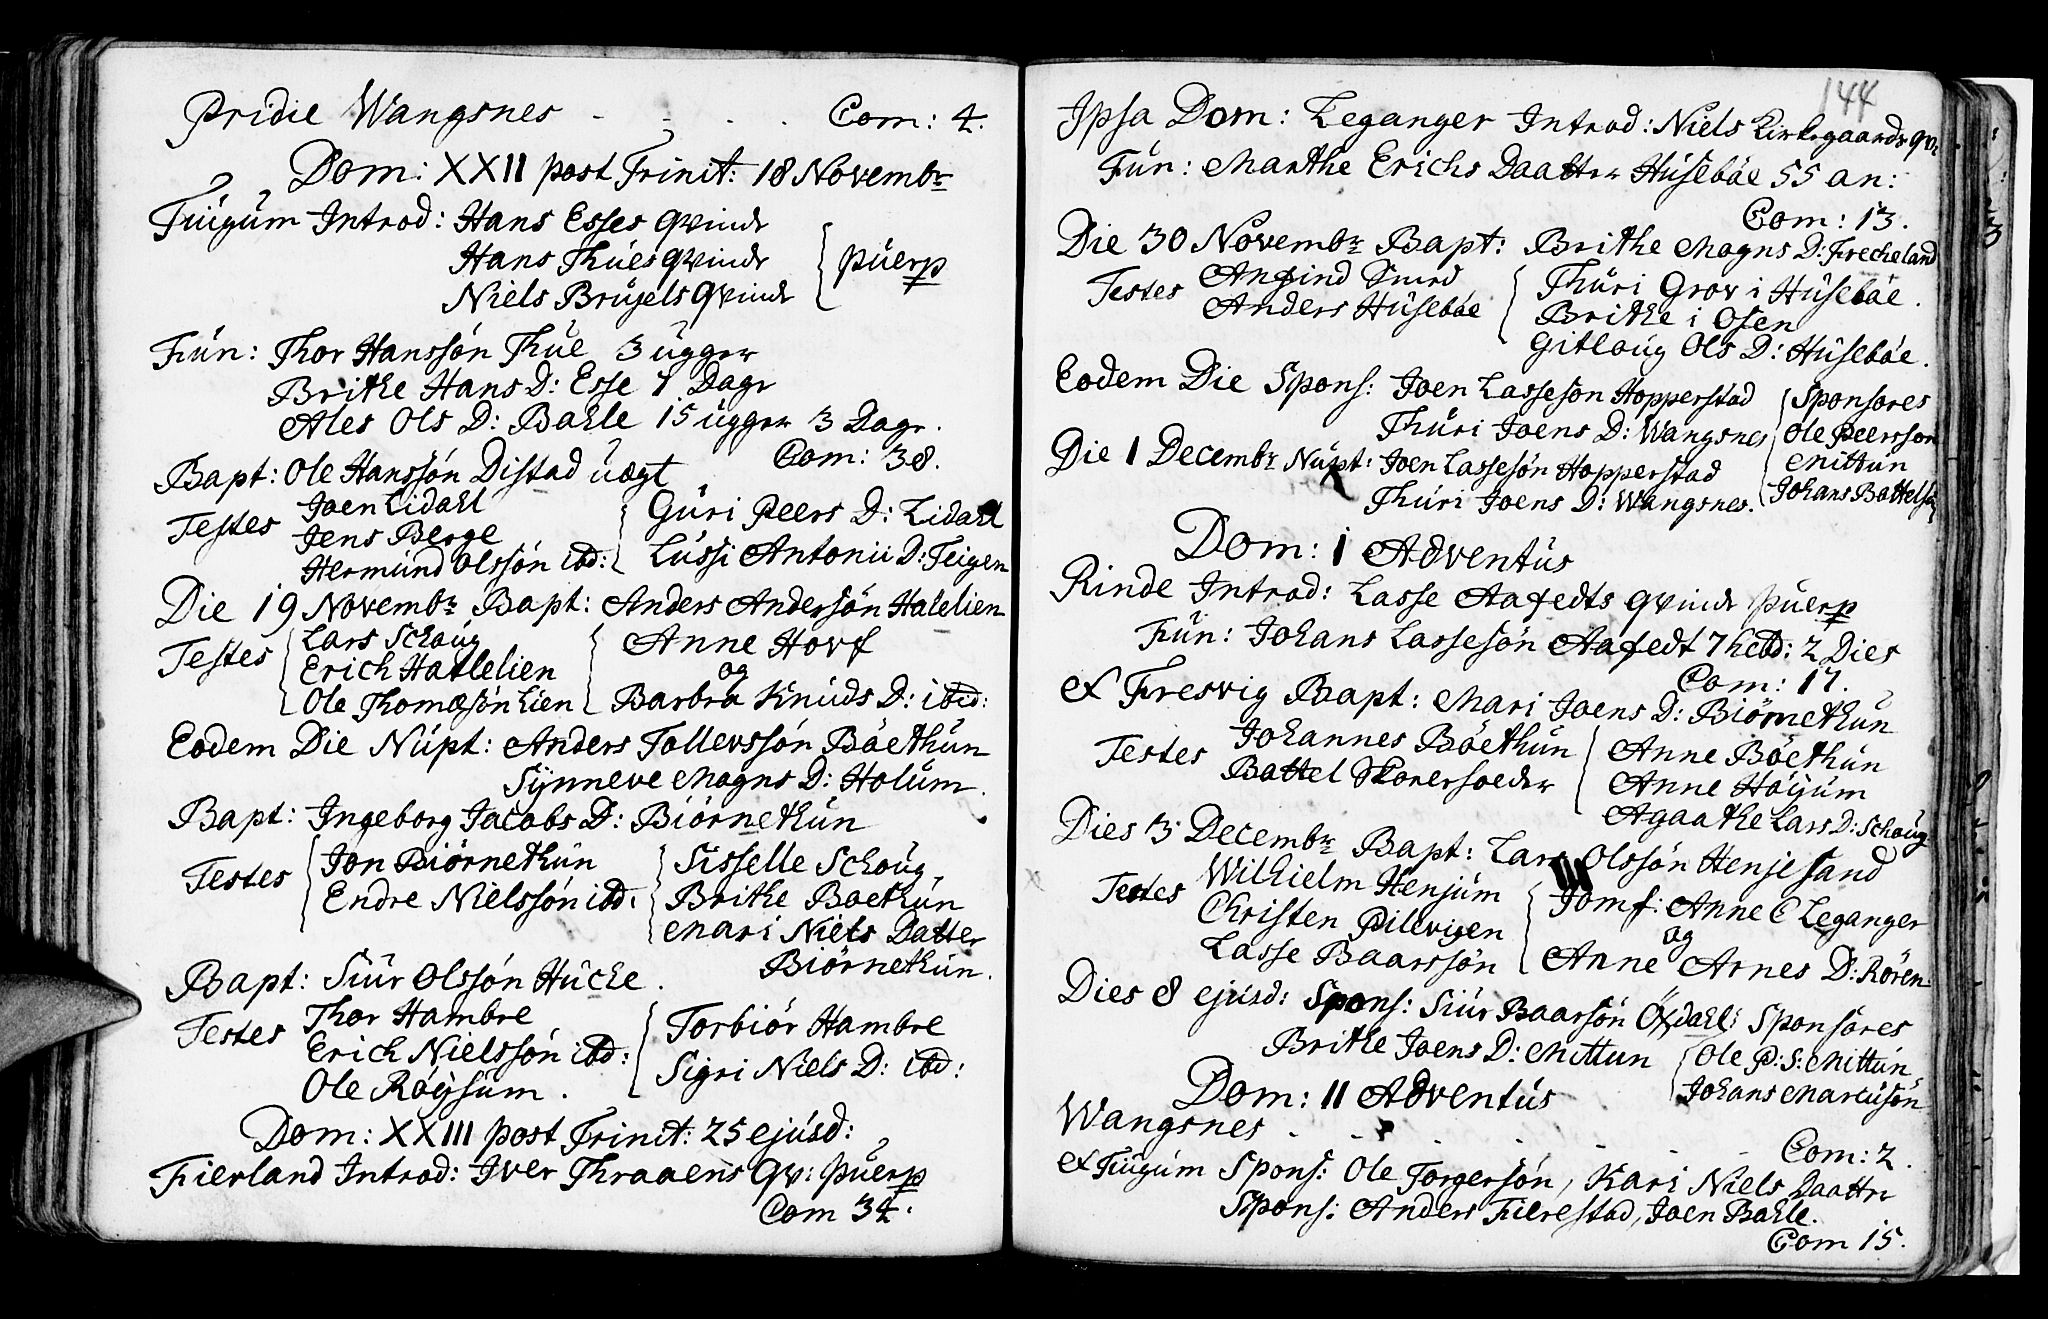 Pridie Wangsnes - - - . Com: 4.
Dom: XXII post Trinit: 18 Novembr
Fügum Introd: Hans Esses qvindr
Hans Thües qvindr
Niels Brügels qvindr
püerp
Fün: Thor Hanssön Thüe 3 ügger
Brithe Hans D: Esse 7 Dagr
Ales Ols D: Bahle 15 ügger 3 Dagr.
Com: 38.
Bapt: Ole Hanssön Distad üægt
Testes Joen Lidahl
Jens Berge
Hermünd Olssön ibd:
Güri Peers D: Lidahl
Lüssi Antonii D: Teigen
Die 19 Novembr Bapt: Anders Andersön Hatelien
Testes Lars Schoüg
Erich Hatlelien
Ole Thomæsön Lien
Anne Hovf
og
Barbra Knüds D: ibid:
Eodem Die Nüpt: Anders Tollevssön Böethün
Sÿnneve Mogns D: Holüm.
Bapt: Ingeborg Jacobs D: Biörnethün
Testes Jon Biörnethün
Endre Nielssön ibd:
Sisselle Schoüg,
Brithe Boethün
Mari Niels Datter
Biörnethün.
Bapt: Siür Olssön Hücke.
Testes Thor Hambre
Erich Nielssön ibd:
Ole Röÿsüm.
Torbiör Hambre
Sigri Niels D: ibd:
Dom: XXIII post Trinit: 25 ejüsd:
Fierland Introd: Iver Thraaens qv: püerp
Com 34.
144
Ipsa Dom: Leganger Introd: Niels Kirkegaards qv:
Fün: Marthe Erichs Daattr Hüsebÿe 55 an:
Com: 13.
Die 30 Novembr Bapt: Brithe Mogns D: Frecheland
Testes Anfind Smed
Anders Hüsebÿe
Thüri Grov i Hüsebÿe.
Brithe i Osen
Gitloüg Ols D: Hüsebÿe.
Eodem Die Spons: Joen Lasseson Hopperstad
Thüri Joens D: Wangsnes
Sponsores
Ole Peersson
Mittün
Johans Battelsö
Die 1 Decembr Nüpt: Joen Lassesön Hopperstad
Thüri Joens D: Wangsnes.
Dom: I Adventüs
Rinde Introd: Lasse Aafedts qvindr püerp
Fün: Johans Lassesön Aafedt 7 hebd: 2 Dies
Com: 17.
& Fresvig Bapt: Mari Joens D: Biörnethün
Testes Johannes Böethün
Battel
Anne Böethün
Anne Höÿüm
Agaathe Lars D: Schoüg
Dies 3 Decembr Bapt: Lars Olssön Henjesand
Testes Wilhielm Henjüm
Christen Pilevigen
Lasse Baarssön
Jomf: Anne C Leganger
og
Anne Arnes D: Rören
Dies 8 ejüsd: Spons: Siür Baarsön Öxdahl: Sponsores
Brithe Joens D: Mittün
Ole P: S: Mittün,
Johans Marcüsön
Dom: II Adventüs
Wangsnes - - - - - Com: 2.
& Fügüm Spons: Ole Torgersön, Kari Niels Daattr
Spons: Anders Fierestad, Joen Bahle.
Com 15.